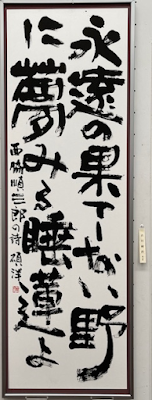 永遠の果てしない野
に夢みる睡蓮よ
西脇順三郎の詩 碩洋